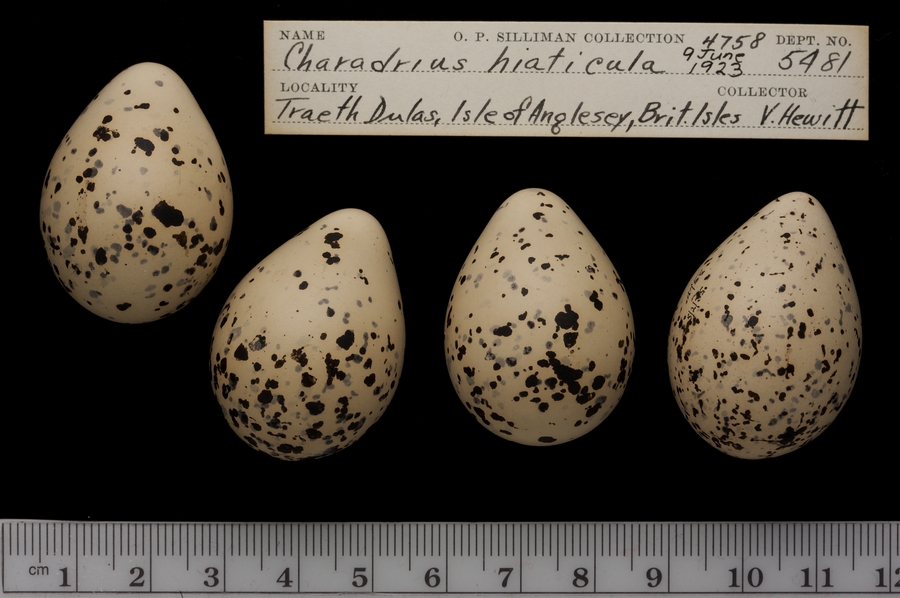 NAME O. P. SILLIMAN COLLECTION 4758 DEPT. NO.
Charadrius hiaticula 9 June 1923 5481
LOCALITY COLLECTOR
Traeth Dulas, Isle of Anglesey, Brit. Isles V. Hewitt
cm 1 2 3 4 5 6 7 8 9 10 11 12